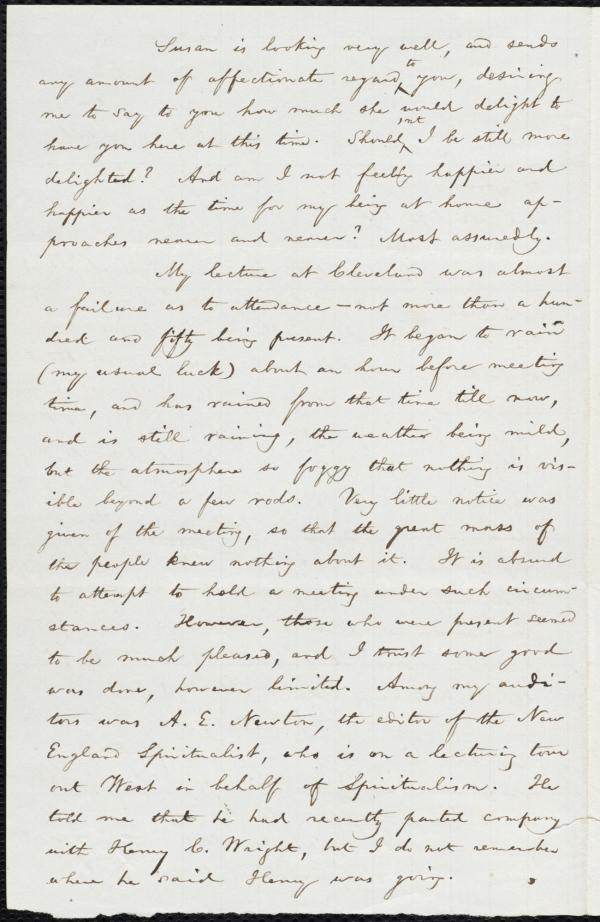 Susan is looking very well, and sends
any amount of affectionate regard to you, desiring
me to say to you how much she would delight to
have you here at this time. Should not I be still more
delighted? And am I not feeling happier and
happier as the time for my being at home ap-
proaches nearer and nearer? Most assuredly.
My lecture at Cleveland was almost
a failure as to attendance — not more than a hun-
dred and fifty being present. It began to rain
(my usual luck) about an hour before meeting
time, and has rained from that time till now,
and is still raining, the weather being mild,
but the atmosphere so foggy that nothing is vis-
ible beyond a few rods. Very little notice was
given of the meeting, so that the great mass of
the people knew nothing about it. It is absurd
to attempt to hold a meeting under such circum-
stances. However, those who were present seemed
to be much pleased, and I trust some good
was done, however limited. Among my audi-
tors was A. E. Newton, the editor of the New
England Spiritualist, who is on a lecturing tour
out West in behalf of Spiritualism. He
told me that he had recently parted company
with Henry C. Wright, but I do not remember
where he said Henry was going.